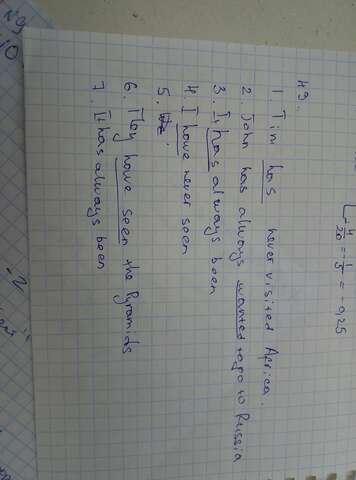 49.
1. Tim has never visited Africa.
2. John has always wanted to go to Russia
3. It has always been
4. I howe never seen
5.
6. They howe seen the Pyramids
7. It has always been